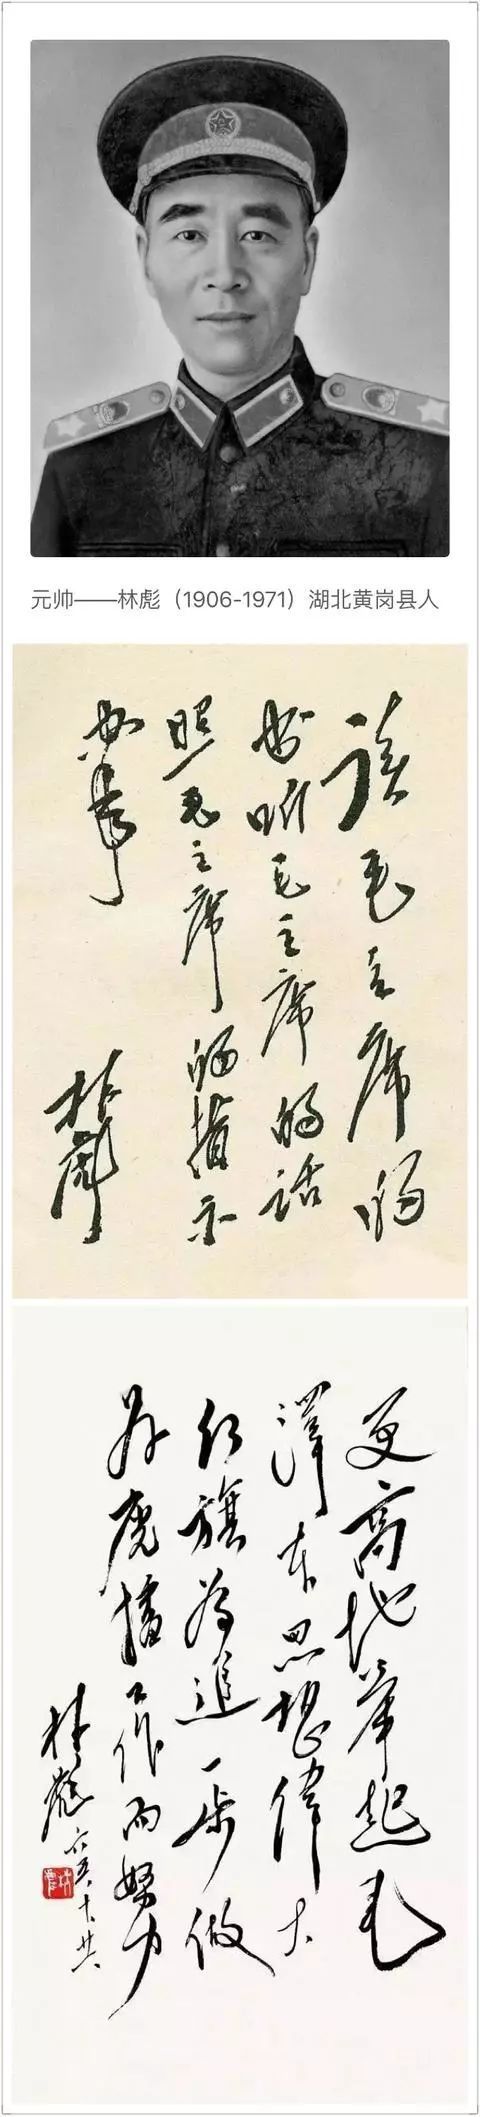 元帅——林彪（1906-1971）湖北黄岗县人
读毛主席的
书听毛主席的话
照毛主席的指示
办事
林彪
更高地举起毛
澤东思想偉大
红旗为進一步做
好廣播工作而努力
林彪 六五、十、廿六